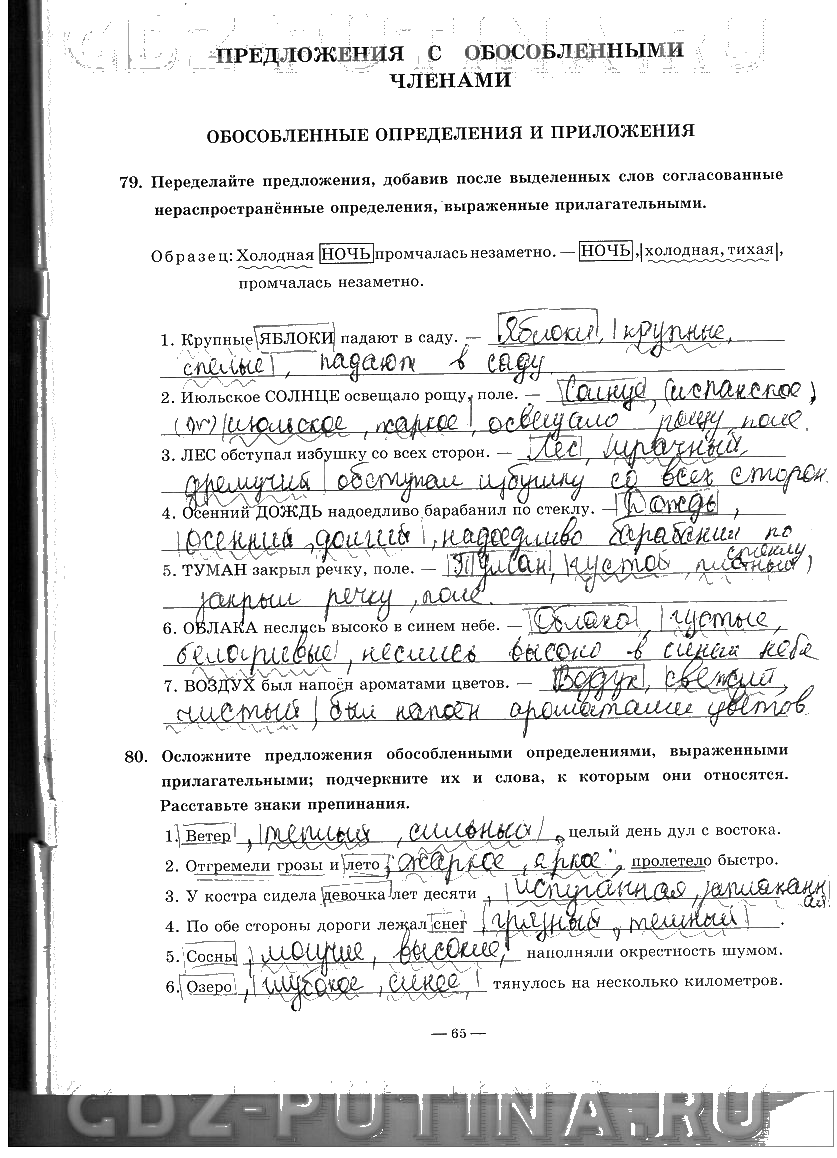 ПРЕДЛОЖЕНИЯ С ОБОСОБЛЕННЫМИ
ЧЛЕНАМИ
ОБОСОБЛЕННЫЕ ОПРЕДЕЛЕНИЯ И ПРИЛОЖЕНИЯ
79. Переделайте предложения, добавив после выделенных слов согласованные
нераспространённые определения, выраженные прилагательными.
Образец: Холодная НОЧЬ промчалась незаметно. — НОЧЬ, |холодная, тихая|,
промчалась незаметно.
1. Крупные ЯБЛОКИ падают в саду. — Яблоки, |крупные,
спелые|, падают в саду
2. Июльское СОЛНЦЕ освещало рощу, поле. — Солнце, (испанское,
|июльское, жаркое|, освещало рощу, поле.
3. ЛЕС обступал избушку со всех сторон. — Лес, |мрачный,
дремучий| обступал избушку со всех сторон.
4. Осенний ДОЖДЬ надоедливо барабанил по стеклу. — Дождь,
|осенний, долгий|, надоедливо барабанил по
стеклу
5. ТУМАН закрыл речку, поле. — Туман, |густой,
закрыл речку, поле.
6. ОБЛАКА неслись высоко в синем небе. — Облака, |густые,
белогривые|, неслись высоко в синем небе
7. ВОЗДУХ был напоён ароматами цветов. — Воздух, |свежий,
чистый| был напоён ароматами цветов.
80. Осложните предложения обособленными определениями, выраженными
прилагательными; подчеркните их и слова, к которым они относятся.
Расставьте знаки препинания.
1. Ветер, |теплый, сильный|, целый день дул с востока.
2. Отгремели грозы и лето, жаркое, яркое, пролетело быстро.
3. У костра сидела девочка лет десяти, |испуганная, заплаканн
ая.
4. По обе стороны дороги лежал снег |грязный, темный|.
5. Сосны, могучие, высокие, наполняли окрестность шумом.
6. Озеро, |глубокое, синее,| тянулось на несколько километров.
— 65 —
GDZ-PUTINA.RU